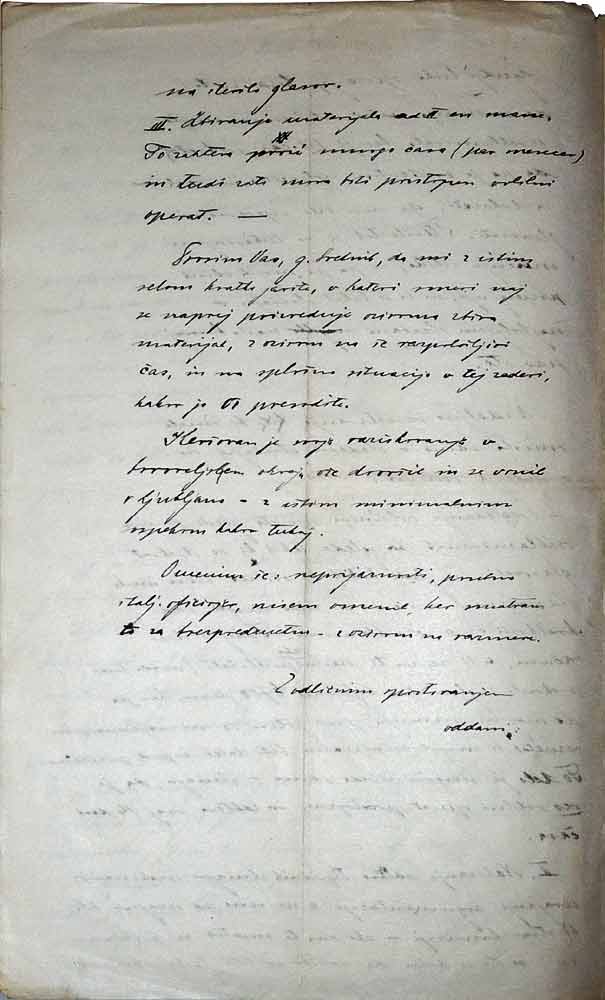 na število glasov.
III. Zbiranje materijala en masse.
To zahteva mnogo časa (par mesecev)
in tudi zato mora biti pristopen volilni
operat. —
Prosim Vas, g. Srednik, da mi z istim
selom kratko javite, v kateri smeri naj
se naprej poizveduje oziroma zbira
materijal, z ozirom na še razpoložljivi
čas, in na splošno situacijo v tej zadevi,
kakor jo Vi presodite.
Kersovan je svoje raziskovanje v
okraju že dovršil in se vrnil
v Ljubljano – z istim minimalnim
uspehom kakor tukaj.
Omenim še: neprijaznosti, posebno
italj. oficirjev, nisem omenil, ker smatram
to za brezpredmetno – z ozirom na razmere.
Z odličnim spoštovanjem
oddani: